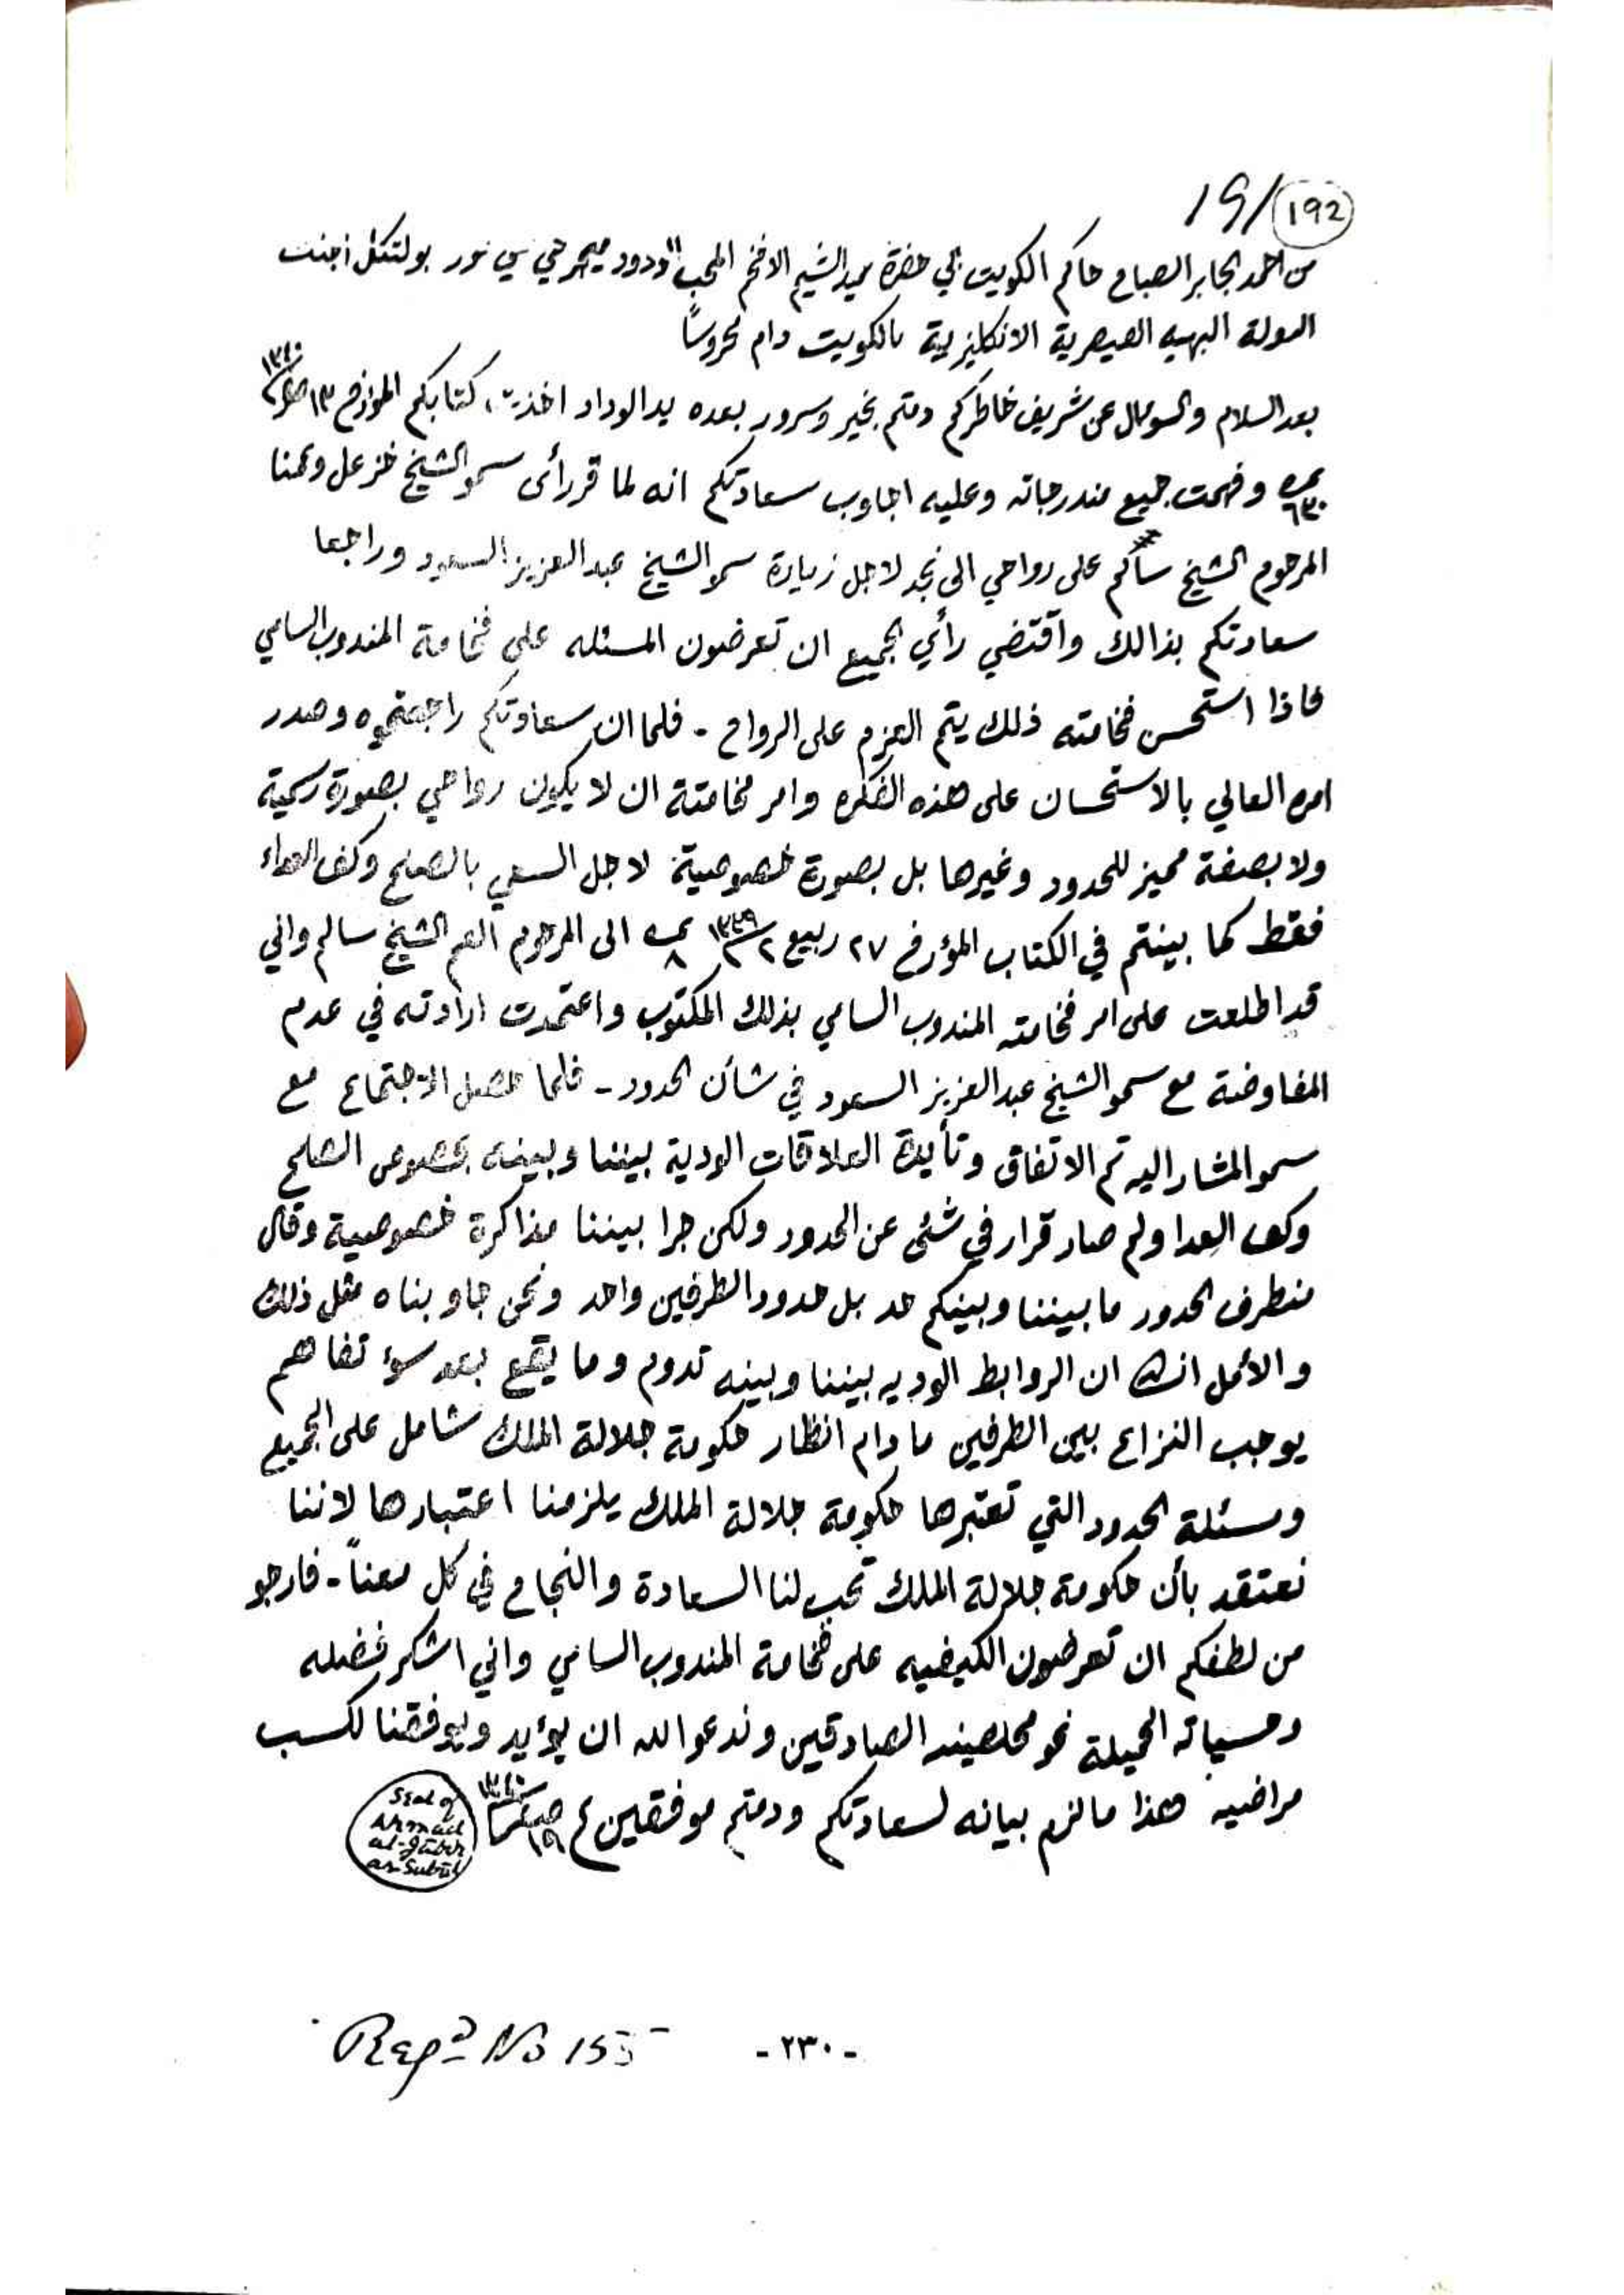 19/ 192
من احمد الجابر الصباح حاكم الكويت الى حضرة حميد الشيم الافخم المحب الودود ميجر جي سي مور بولتكل اجنت
الدولة البهيه القيصرية الانكليزية بالكويت دام محروساً
بعد السلام والسوءال عن شريف خاطركم دمتم بخير وسرور بعده بيد الوداد اخذت كتابكم المؤرخ ١٣ صفر ١٣٤٠
نمره ٦٣٠ وفهمت جميع مندرجاته وعليه اجاوب سعادتكم انه لما قر رأى سمو الشيخ خزعل وعمنا
المرحوم الشيخ سالم على رواحي الى نجد لاجل زيارة سمو الشيخ عبدالعزيز السعود وراجعا
سعادتكم بذالك واقتضي رأي الجميع ان تعرضون المسئله على فخامة المندوب السامي
فاذا استحسن فخامته ذلك يتم العزم على الرواح - فلما ان سعادتكم راجعتموه وصدر
امره العالي بالاستحسان على هذه الفكره وامر فخامتة ان لا يكون رواحي بصورة رسمية
ولا بصفة مميز للحدود وغيرها بل بصورة خصوصية لاجل السعي بالصلح وكف العداء
فقط كما بينتم في الكتاب المؤرخ ٢٧ ربيع ٢ ١٣٣٩ نمره ٨ الى المرحوم العم الشيخ سالم واني
قد اطلعت على امر فخامته المندوب السامي بذلك المكتوب واعتمدت ارادته في عدم
المفاوضة مع سمو الشيخ عبدالعزيز السعود في شأن الحدود - فلما حصل الاجتماع مع
سمو المشار اليه تم الاتفاق وتأيدة العلاقات الودية بيننا وبينه بخصوص الصلح
وكف العدا ولم صار قرار في شئى عن الحدود ولكن جرا بيننا مذاكرة خصوصية وقال
منطرف الحدود ما بيننا وبينكم حد بل حدود الطرفين واحد ونحن جاوبناه مثل ذلك
والأمل انشاء ان الروابط الوديه بيننا وبينه تدوم وما يقع بعد سوء تفاهم
يوجب النزاع بين الطرفين ما دام انظار حكومة جلالة الملك شامل على الجميع
ومسئلة الحدود التي تعتبرها حكومة جلالة الملك يلزمنا اعتبارها لاننا
نعتقد بأن حكومة جلالة الملك تحب لنا السعادة والنجاح في كل معناً - فارجو
من لطفكم ان تعرضون الكيفيه على فخامة المندوب السامي واني اشكر فضله
وحسياته الجميلة نحو مخلصينه الصادقين وندعو الله ان يؤيد ويوفقنا لكسب
مراضيه هذا ما لزم بيانه لسعادتكم ودمتم موفقين ١٩ صفر ١٣٤٠
Seal of
Ahmad
al-Jabir
as-Subah
Regd No 155
- ٢٣٠ -